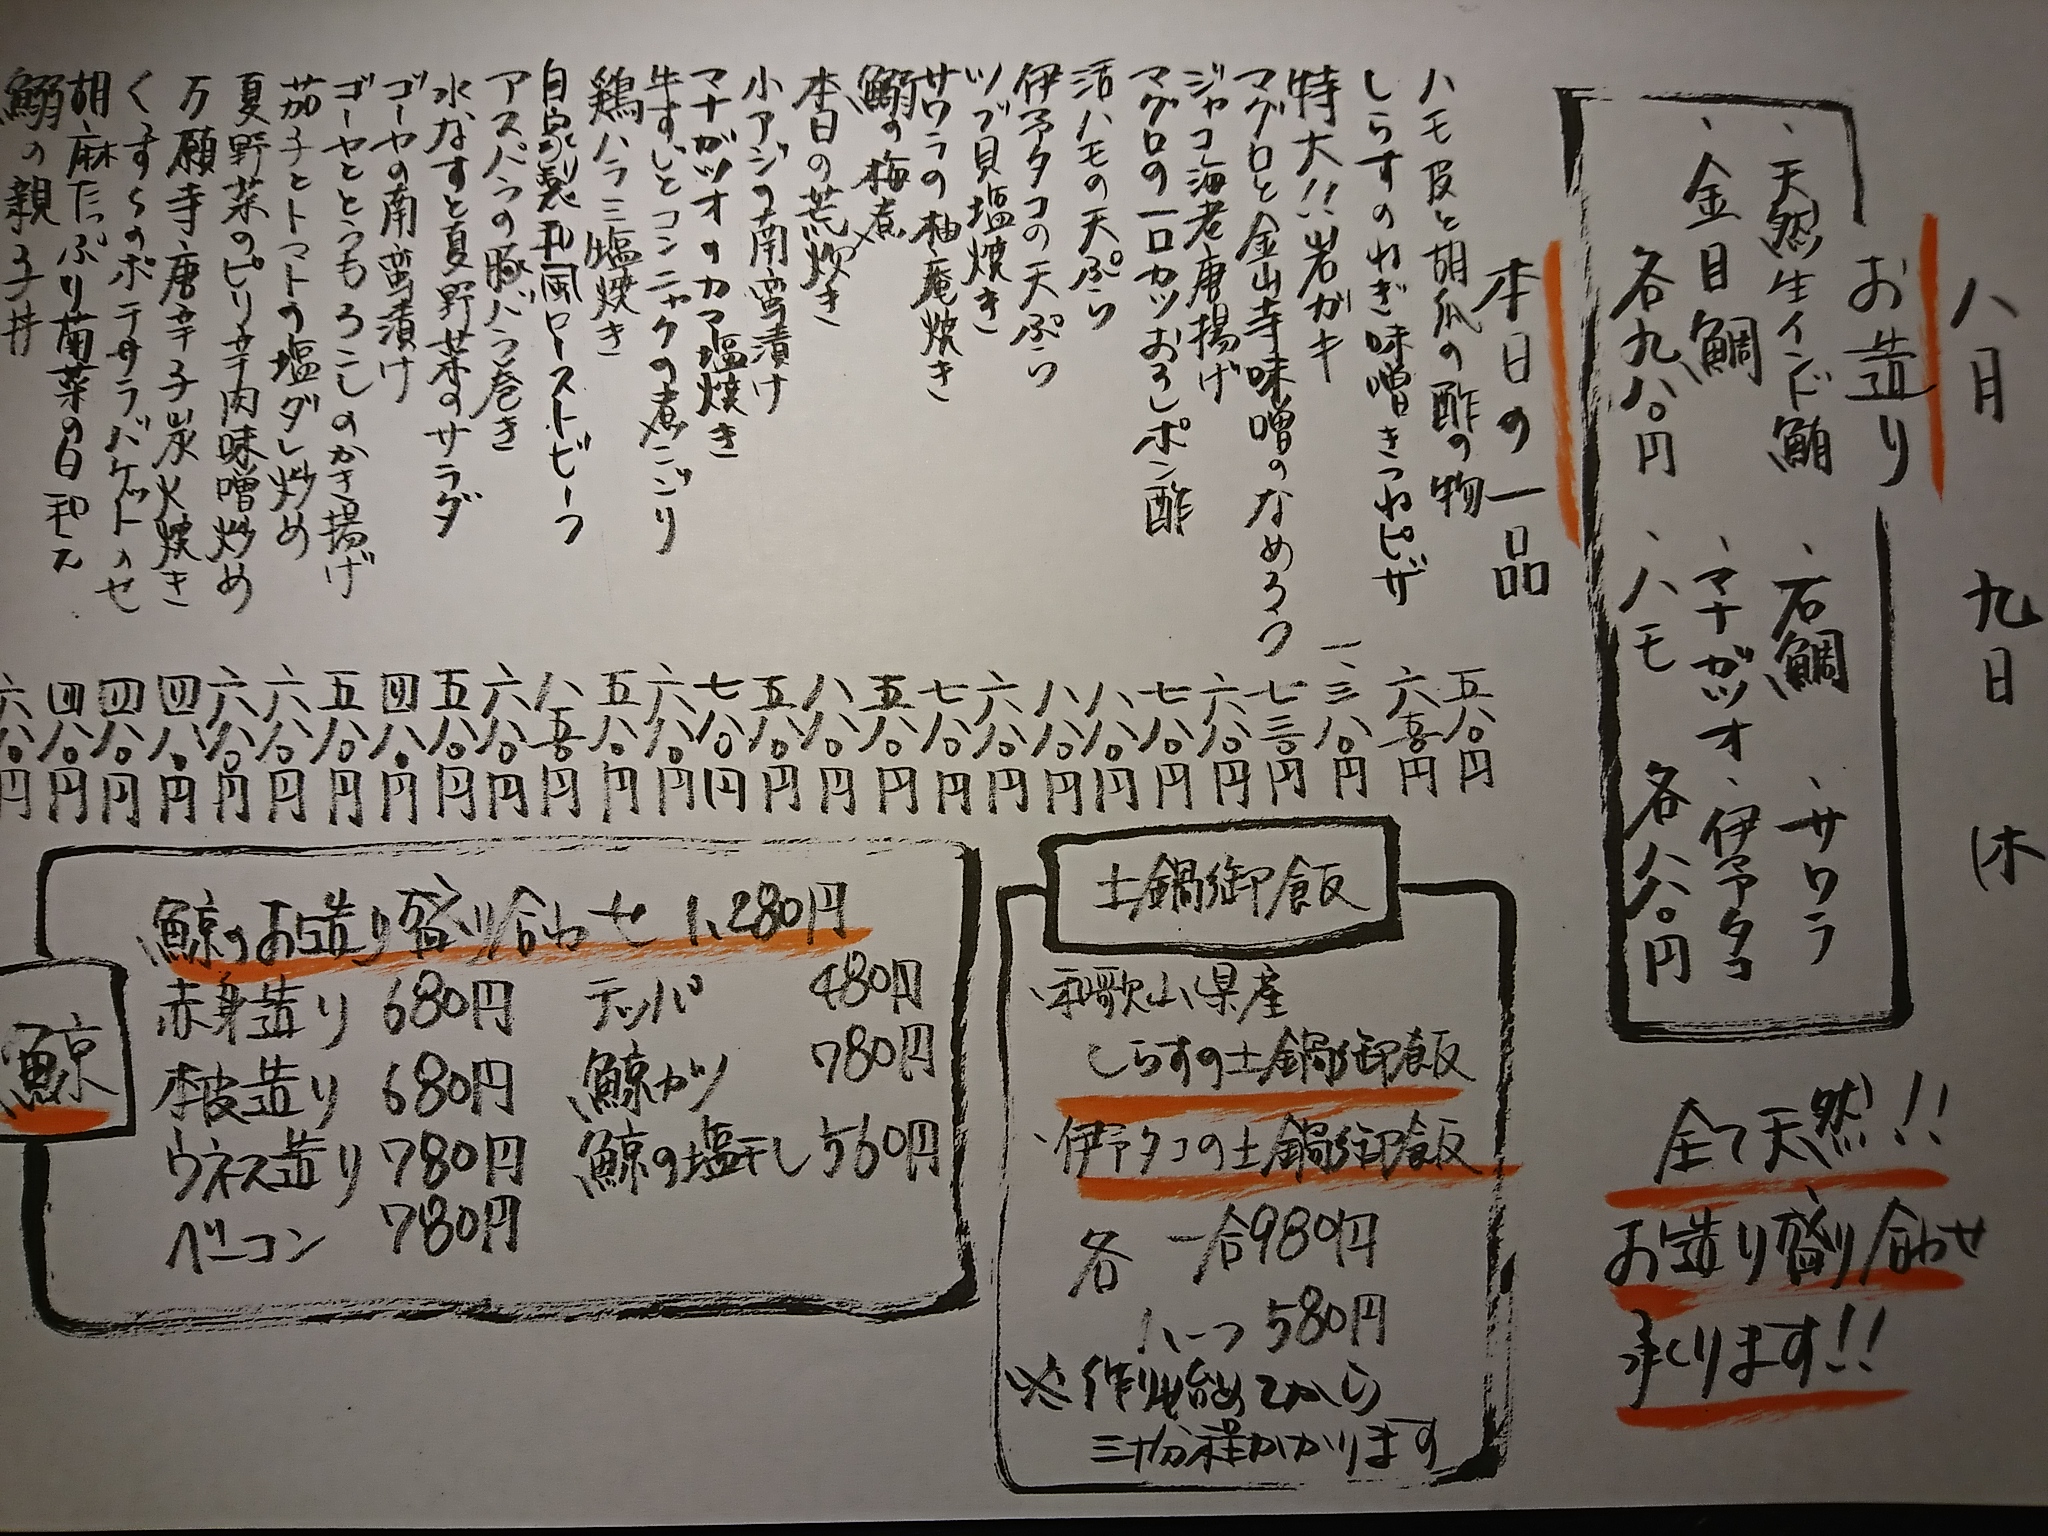 八月 九日 (木
お造り
、天然生インド鮪
、金目鯛
各九八〇円
、石鯛 、サワラ
、マナガツオ 、伊予タコ
、ハモ 各八八〇円
全て天然!!
お造り盛り合わせ
承ります!!
本日の一品
ハモ皮と胡瓜の酢の物 五八〇円
しらすのねぎ味噌きつねピザ 六五〇円
特大!!岩ガキ 一、三八〇円
マグロと金山寺味噌のなめろう 七三〇円
ジャコ海老唐揚げ 六八〇円
マグロの一口カツおろしポン酢 七八〇円
活ハモの天ぷら 八八〇円
伊予タコの天ぷら 八八〇円
ツブ貝塩焼き 六八〇円
サワラの柚庵焼き 七八〇円
鰯の梅煮 五八〇円
本日の荒炊き 八八〇円
小アジの南蛮漬け 五八〇円
マナガツオのカマ塩焼き 七八〇円
牛すじとコンニャクの煮こごり 六八〇円
鶏ハラミ塩焼き 五八〇円
自家製和風ローストビーフ 八五〇円
アスパラの豚バラ巻き 六八〇円
水なすと夏野菜のサラダ 五八〇円
ゴーヤの南蛮漬け 四八〇円
ゴーヤととうもろこしのかき揚げ 五八〇円
茄子とトマトの塩ダレ炒め 六八〇円
夏野菜のピリ辛肉味噌炒め 六八〇円
万願寺唐辛子炭火焼き 四八〇円
くずしのポテサラバケットのせ 四八〇円
胡麻たっぷり菊菜の白和え 四八〇円
鰯の親子丼 六八〇円
土鍋御飯
、和歌山県産
しらすの土鍋御飯
、伊予タコの土鍋御飯
各 一合980円
ハーフ 580円
※作り始めてから
三十分程かかります
鯨
鯨のお造り盛り合わせ 1,280円
赤身造り 680円 テッパ 480円
本皮造り 680円 鯨カツ 780円
ウネス造り 780円 鯨の塩干し 560円
ベーコン 780円